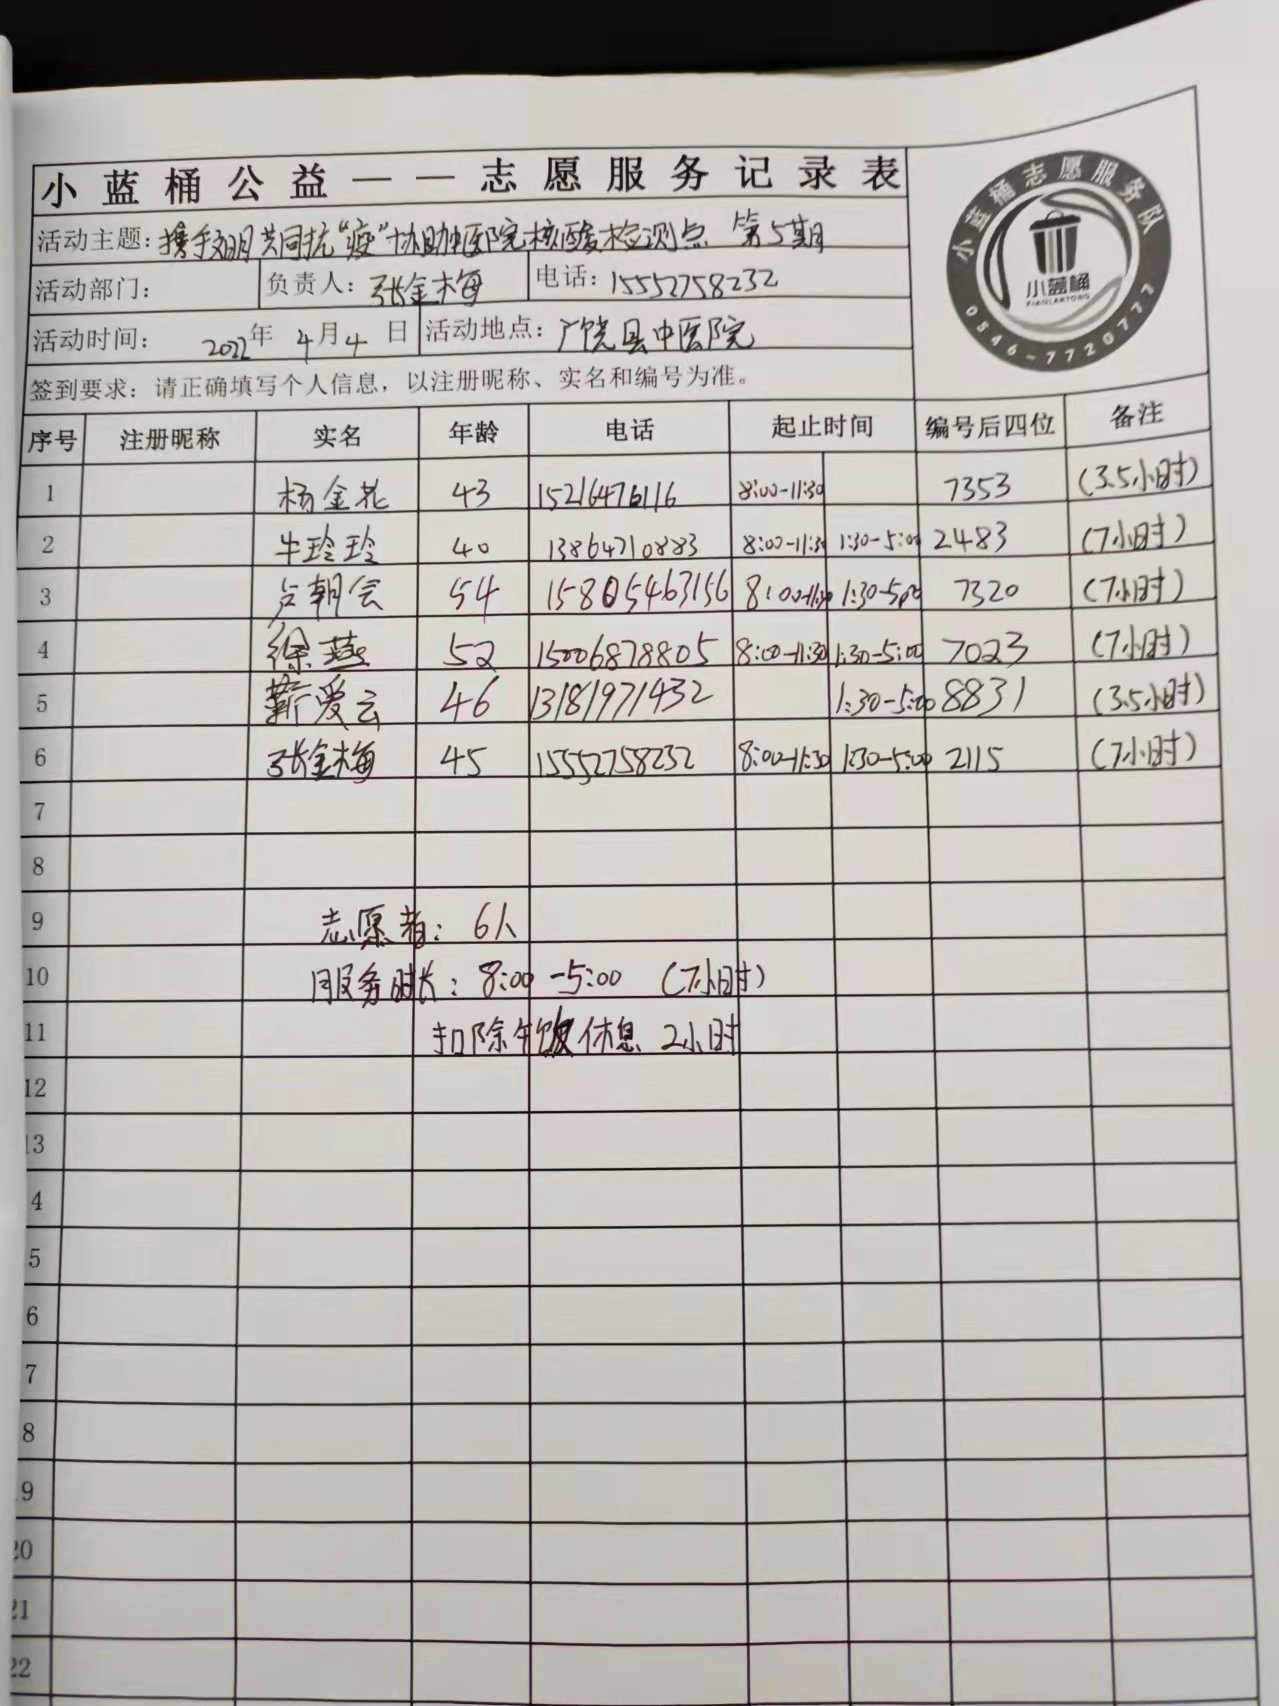 小蓝桶公益——志愿服务记录表
小蓝桶志愿服务队
小蓝桶
XIAOLANTONG
0546-7720777
活动主题：携手文明共同抗“疫”协助中医院核酸检测点 第5期
活动部门： 负责人：张金梅 电话：15552758232
活动时间： 2022年 4月4日 活动地点：广饶县中医院
签到要求：请正确填写个人信息，以注册昵称、实名和编号为准。
序号 注册昵称 实名 年龄 电话 起止时间 编号后四位 备注
1 杨金花 43 15216476116 8:00-11:30 7353 (3.5小时)
2 牛玲玲 40 13864710883 8:00-11:30 1:30-5:00 2483 (7小时)
3 卢朝会 54 15805463156 8:00-11:30 1:30-5:00 7320 (7小时)
4 徐燕 52 15006878805 8:00-11:30 1:30-5:00 7023 (7小时)
5 靳爱云 46 13181971432 1:30-5:00 8831 (3.5小时)
6 张金梅 45 15552758232 8:00-11:30 1:30-5:00 2115 (7小时)
7
8
9 志愿者：6人
10 服务时长：8:00-5:00 (7小时)
11 扣除午饭休息 2小时
12
13
4
5
6
7
8
9
20
21
22